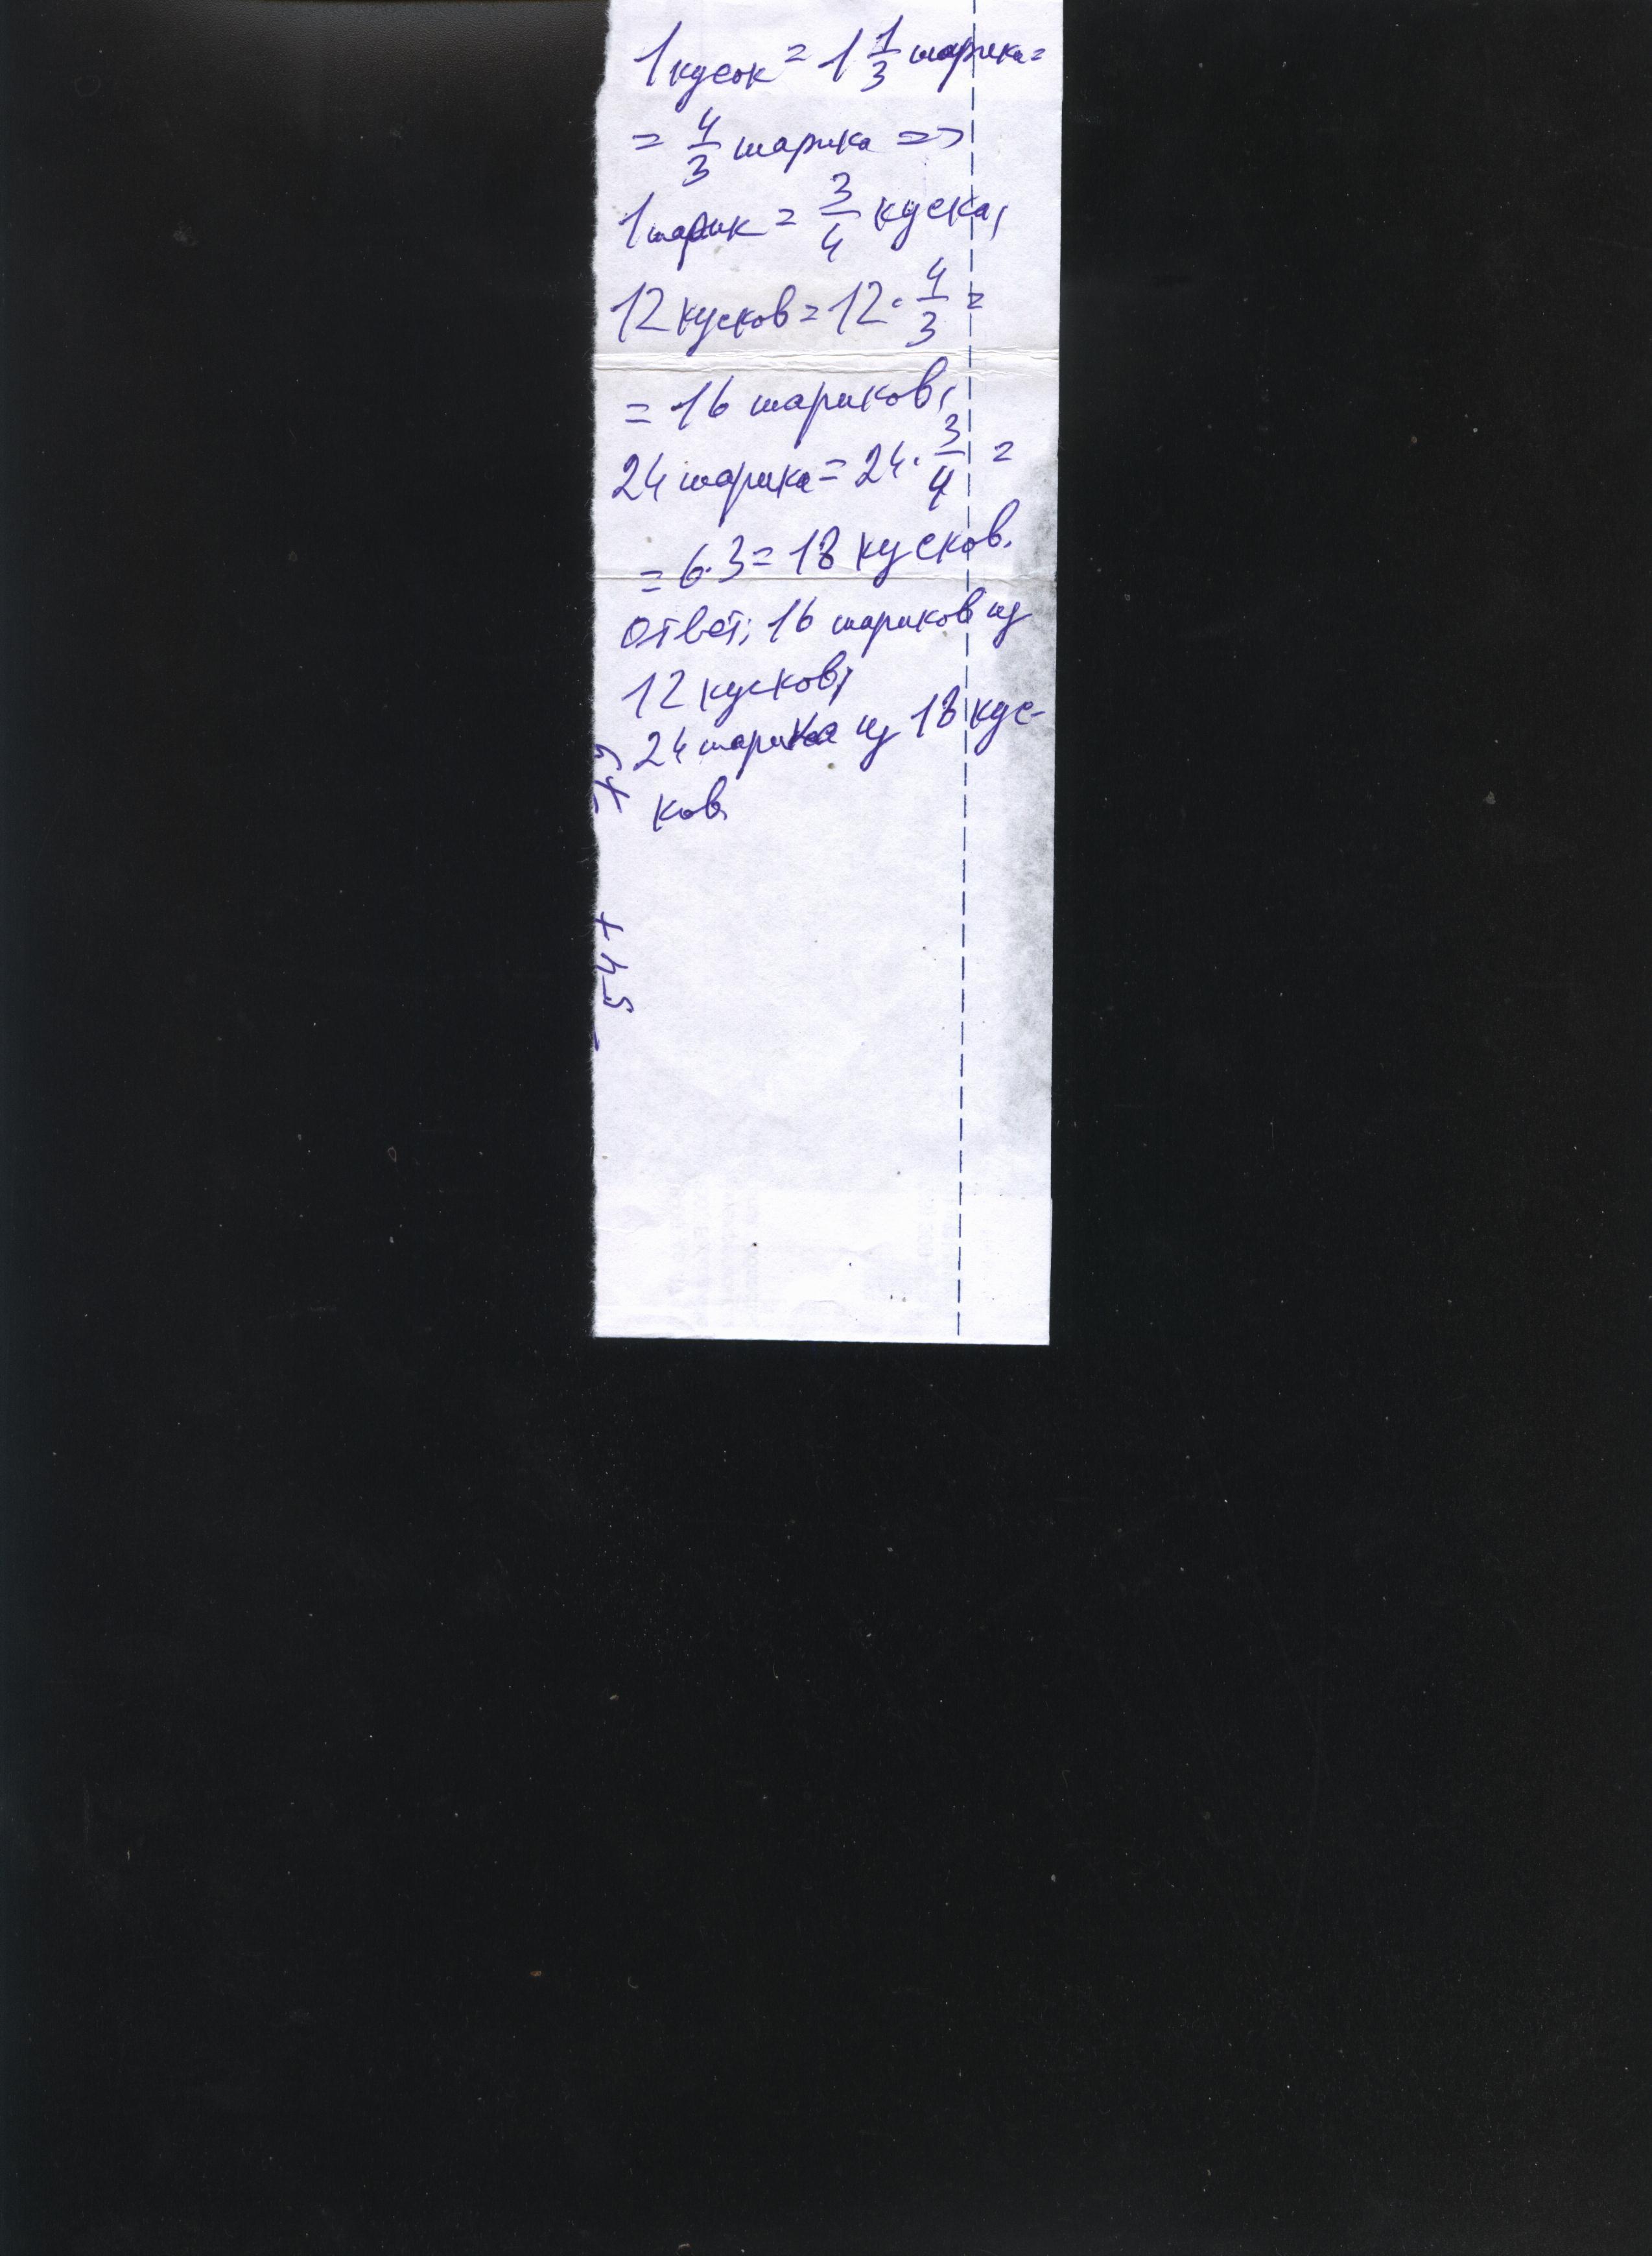 1 кусок = 1 1/3 шарика =
= 4/3 шарика =>
1 шарик = 3/4 куска,
12 кусков = 12 · 4/3 =
= 16 шариков,
24 шарика = 24 · 3/4 =
= 6·3 = 18 кусков.
Ответ: 16 шариков из
12 кусков;
24 шарика из 18 кус-
ков.
54+